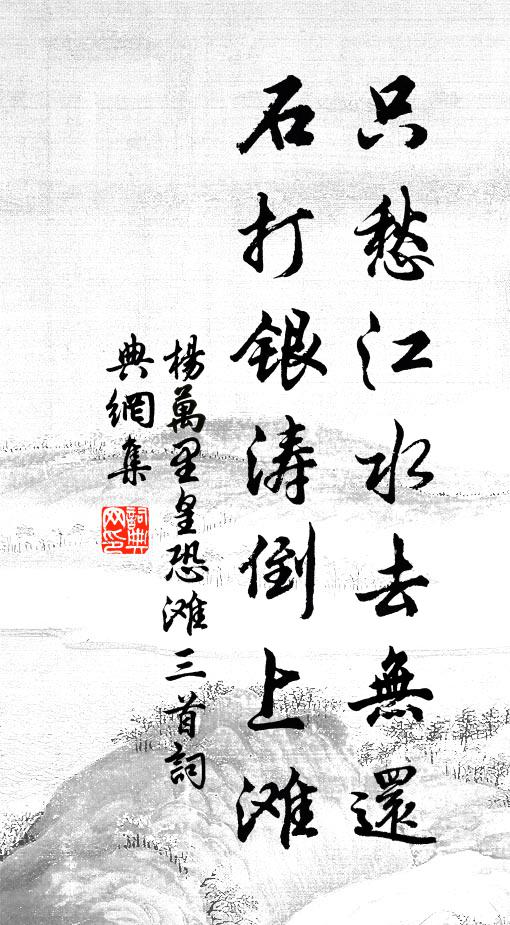 只愁江水去無還
石打銀涛倒上滩
楊萬里皇恐滩三首詞
典網集
詞典
网印